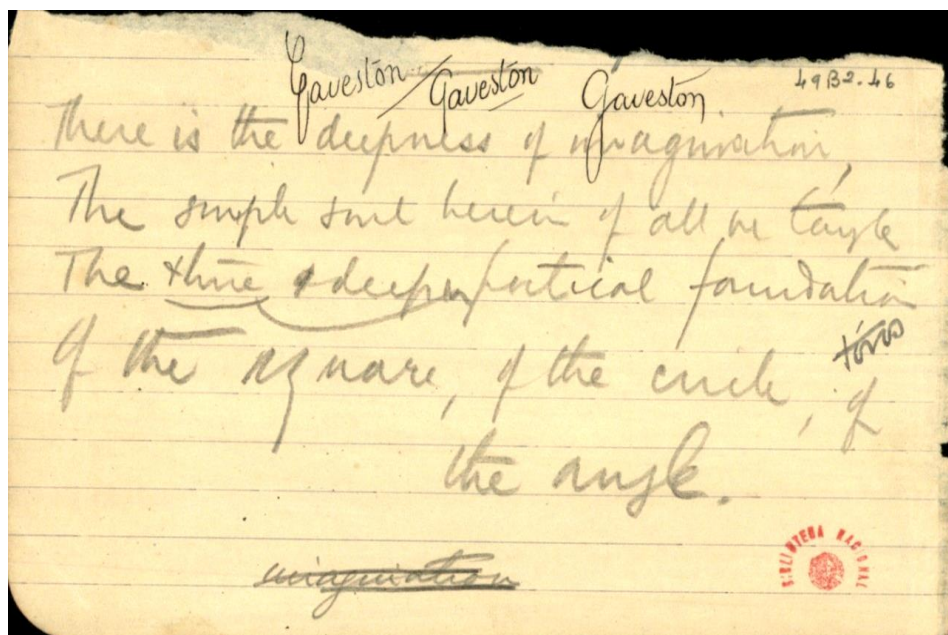 Gaveston / Gaveston Gaveston
49B2-46
There is the deepness of imagination,
The simple soul herein of all we
The true deeper poetical foundation
Of the square, of the circle, of
the angle.
imagination
BIBLIOTECA NACIONAL